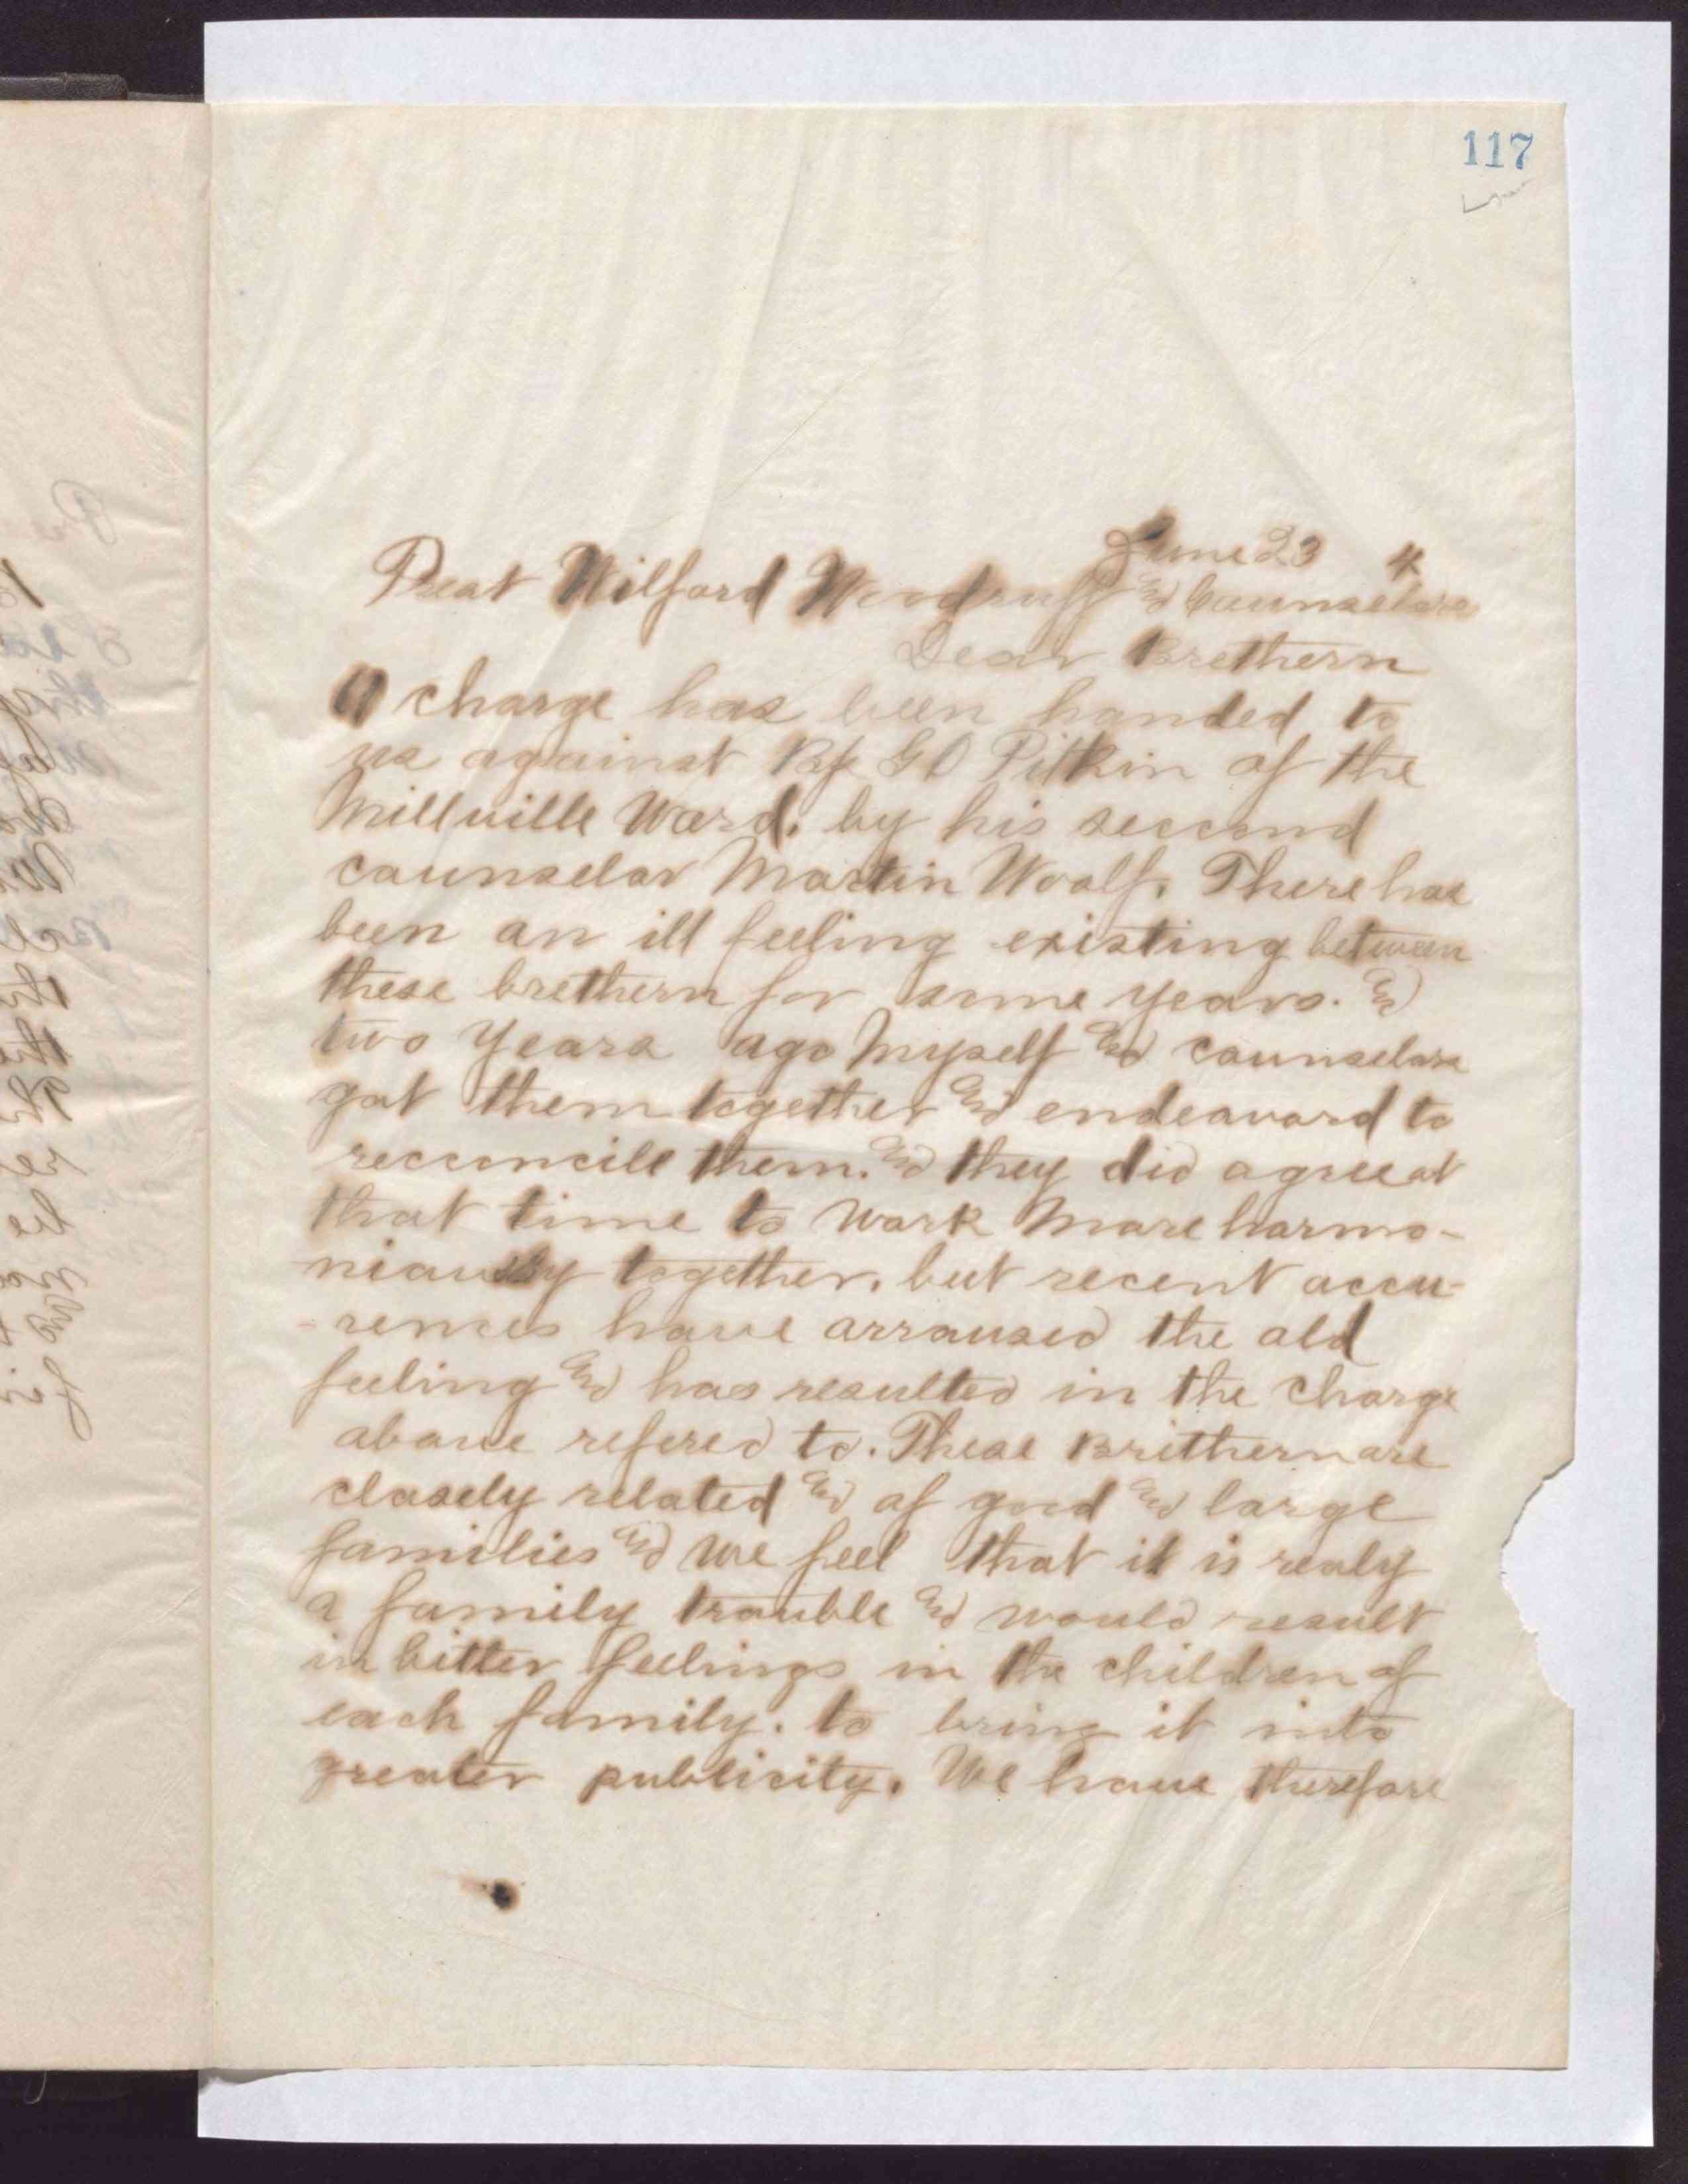 117
June 23 4
Prest Wilford Woodruff and Counselors
Dear Brethern
A charge has been handed to
us against Bp G O Pitkin of the
Millville Ward. by his second
counselor Martin Woolf. There has
been an ill feeling existing between
these brethern for some years. and
two years ago Myself and counselors
got them together and endeavord to
reconcile them. and they did agree at
that time to work More harmo-
niously together. but recent accu-
rences have arroused the old
feeling and has resulted in the charge
above refered to. These Brethern are
closely related and of good and large
families and we feel that it is realy
a family trouble and would result
in bitter feelings in the children of
each family. to bring it into
greater publicity. We have therefore